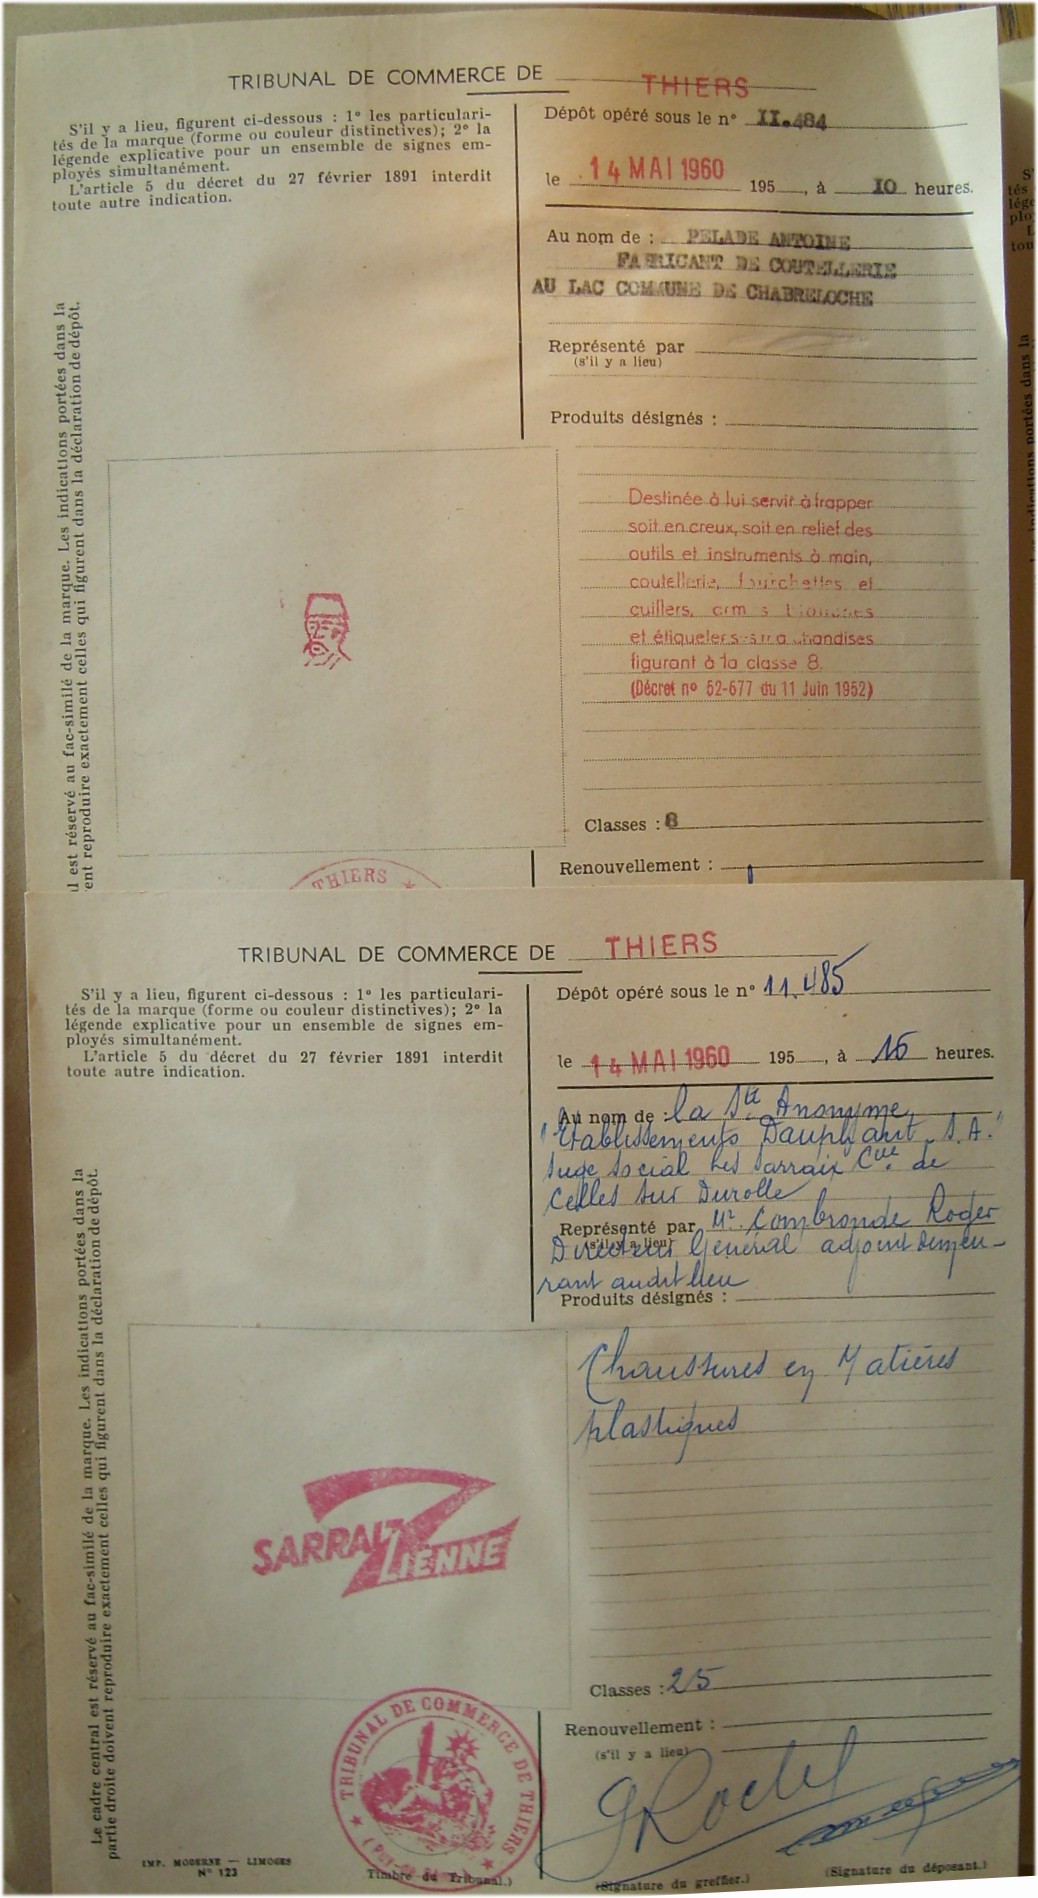 TRIBUNAL DE COMMERCE DE THIERS
S'il y a lieu, figurent ci-dessous : 1° les particulari-
tés de la marque (forme ou couleur distinctives); 2° la
légende explicative pour un ensemble de signes em-
ployés simultanément.
L'article 5 du décret du 27 février 1891 interdit
toute autre indication.
Dépôt opéré sous le n° II.484
le 14 MAI 1960 195 , à IO heures.
Au nom de : PELADE ANTOINE
FABRICANT DE COUTELLERIE
AU LAC COMMUNE DE CHABRELOCHE
Représenté par
(s'il y a lieu)
Produits désignés :
Destinée à lui servir à frapper
soit en creux, soit en relief des
outils et instruments à main,
coutellerie, fourchettes et
cuillers, armes blanches
et étiqueter
figurant à la classe 8.
(Décret n° 52-677 du 11 Juin 1952)
Classes : 8
Renouvellement :
THIERS
l est réservé au fac-similé de la marque. Les indications portées dans la
ent reproduire exactement celles qui figurent dans la déclaration de dépôt.
TRIBUNAL DE COMMERCE DE THIERS
S'il y a lieu, figurent ci-dessous : 1° les particulari-
tés de la marque (forme ou couleur distinctives); 2° la
légende explicative pour un ensemble de signes em-
ployés simultanément.
L'article 5 du décret du 27 février 1891 interdit
toute autre indication.
Dépôt opéré sous le n° 11.485
le 14 MAI 1960 195 , à 16 heures.
Au nom de : la Sté Anonyme
"Etablissements Dauphant S.A."
Siège social Les Sarraix Cne de
Celles sur Durolle
Représenté par Mr. Combronde Roger
(s'il y a lieu)
Directeur Général adjoint demeu-
rant audit lieu
Produits désignés :
Chaussures en Matières
plastiques
SARRAIZIENNE
Classes : 25
Renouvellement :
(s'il y a lieu)
TRIBUNAL DE COMMERCE DE THIERS
Timbre du Tribunal.)
(Signature du greffier.)
(Signature du déposant.)
Le cadre central est réservé au fac-similé de la marque. Les indications portées dans la
partie droite doivent reproduire exactement celles qui figurent dans la déclaration de dépôt.
IMP. MODERNE — LIMOGES
N° 123